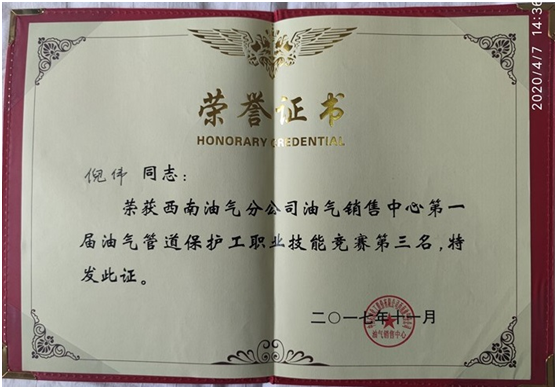 荣誉证书
HONORARY CREDENTIAL
倪伟 同志：
荣获西南油气分公司油气销售中心第一
届油气管道保护工职业技能竞赛第三名,特
发此证。
二〇一七年十一月
油气销售中心
2020/4/7 14:36